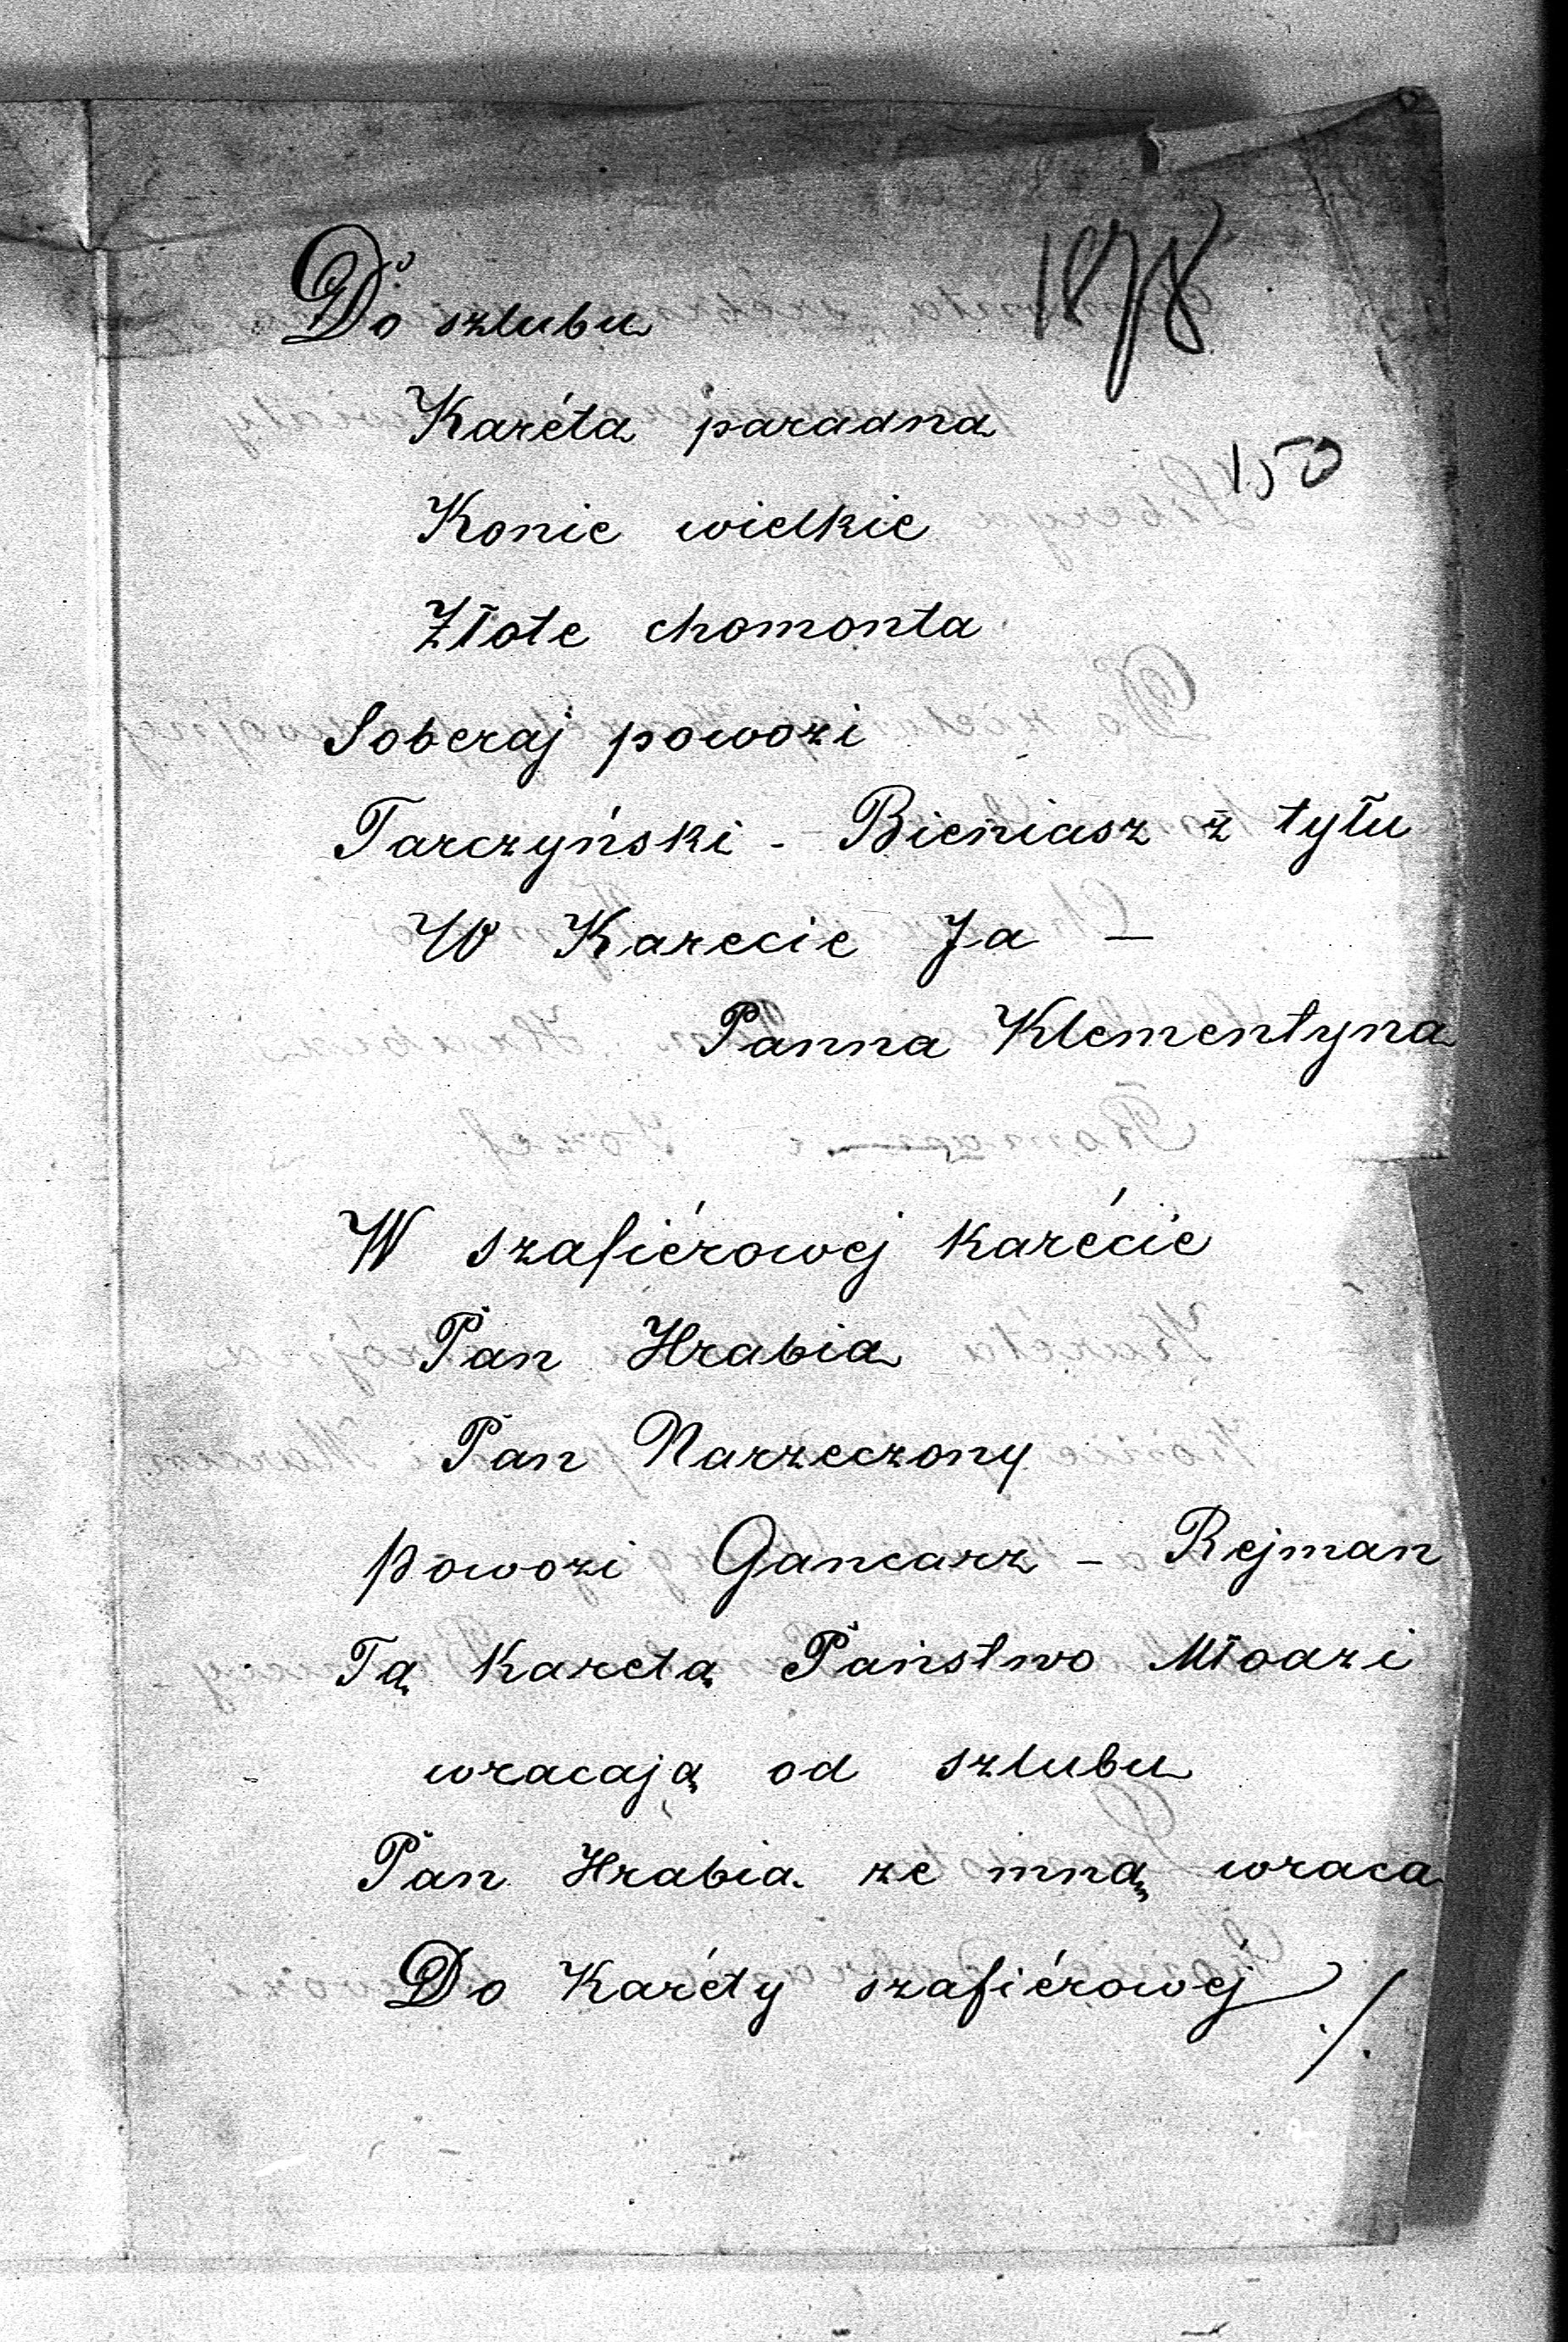 Do szlubu
1878
Karéta paradna
150
Konie wielkie
Złote chomonta
Soberaj powozi
Tarczyński - Bieniasz z tyłu
W Karecie Ja —
Panna Klementyna
W szafiérowej karécie
Pan Hrabia
Pan Narzeczony
powozi Gancarz - Rejman
Tą Karetą Państwo Młodzi
wracają od szlubu
Pan Hrabia ze mną wraca
Do Karéty szafiérowej ./.